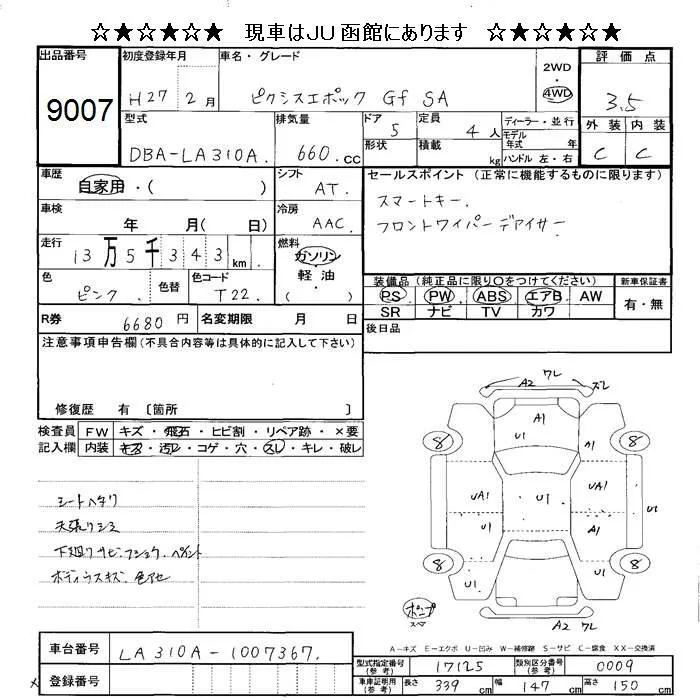 ☆★☆★☆★ 現車はJU函館にあります ☆★☆★☆★
出品番号 9007
初度登録年月 H27 2月
車名・グレード ピクシスエポック Gf SA
2WD 4WD
評価点 3.5
外装 C 内装 C
型式 DBA-LA310A.
排気量 660.cc
ドア 5
形状
定員 4人
積載 kg
ディーラー・並行
モデル年式 年
ハンドル 左・右
車歴 自家用・( )
シフト AT.
セールスポイント (正常に機能するものに限ります)
スマートキー.
フロントワイパーデアイサー
車検 年 月( 日)
冷房 AAC.
走行 13万5千343km
燃料 ガソリン 軽油 ( )
色 ピンク 色替
色コード T22.
装備品 (純正品に限り○をつけてください)
PS PW ABS エアB AW
SR ナビ TV カワ
新車保証書 有・無
R券 6680円
名変期限 月 日
後日品
注意事項申告欄(不具合内容等は具体的に記入して下さい)
修復歴 有 〔箇所 〕
検査員記入欄
FW キズ・飛石・ヒビ割・リペア跡・×要
内装 キズ・汚レ・コゲ・穴・スレ・キレ・破レ
シートヘタリ
天張リシミ
下廻リサビ.フショク.ペイント
ボディウスキズ.色アセ
A2 ワレ ズレ
A1
U1
A1
8 8
UA1 U1 UA1
U1
U1 A1
8 8
U1 U1
ポンプ
スペア
A2 ワレ
A-キズ E-エクボ U-凹み W-補修跡 S-サビ C-腐食 XX-交換済
車台番号 LA310A-1007367.
登録番号
型式指定番号(参考) 17125
類別区分番号(参考) 0009
車庫証明用(参考) 長さ 339cm 幅 147cm 高さ 150cm